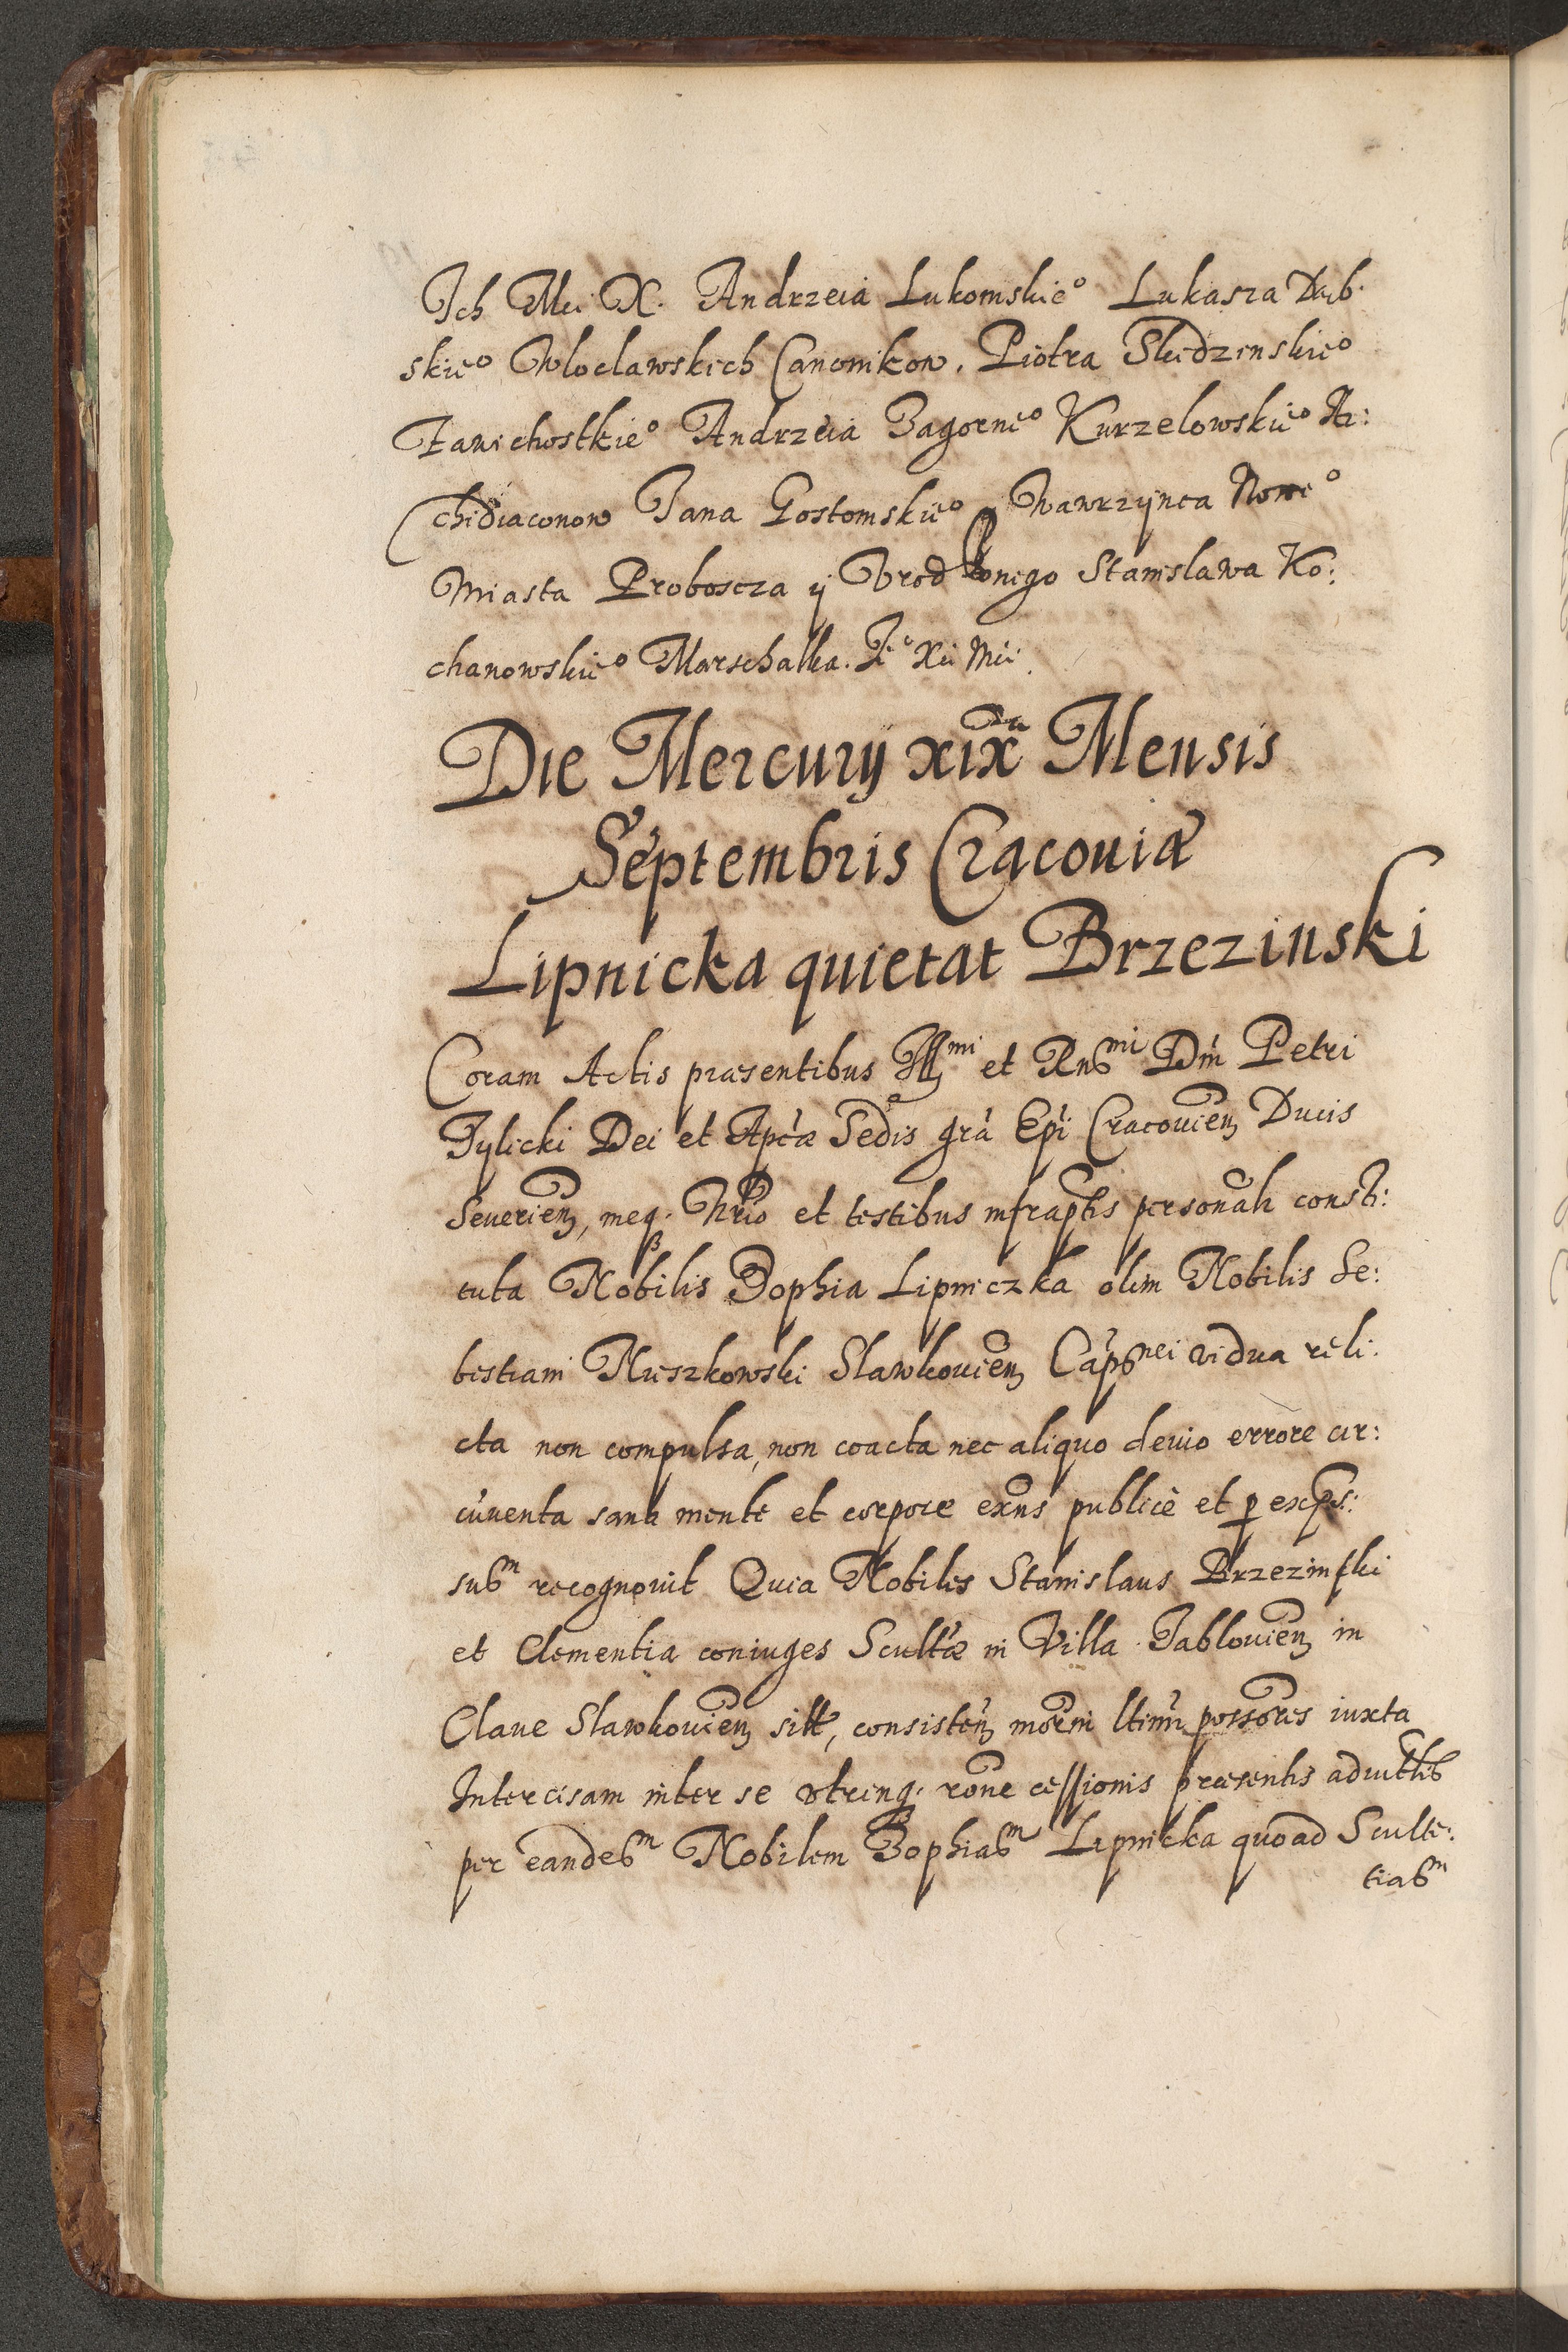 Ich Mci X. Andrzeia Lukomskie° Lukasza Dąb.
skie° Wloclawskich Canonikow. Piotra Skidzinskie°
Zawichostkie° Andrzeia Zagorne° Kurzelowskie° Ar:
chidiaconow Jana Gostomskie° Wawrzynca Nowe°
Miasta Proboscza ÿ Vrodzonego Stanislawa Ko:
chanowskie° Marschalka. Je° Xii Mci.
Die Mercurij xix Mensis
Septembris Cracouiæ
Lipnicka quietat Brzezinski
Coram Actis præsentibus Illmi et Rndmi Dni Petri
Tylicki Dei et Aplcæ Sedis gra Epi Cracouien Ducis
Seuerien, meq. Nrio et testibus infraptis personalr consti:
tuta Nobilis Zophia Lipniczka olim Nobilis Se:
bestiani Muszkowski Slawkouien Capnei vidua reli:
cta non compulsa, non coacta nec aliquo deuio errore cir:
cuuenta sana mente et corpore exns publice et p expres:
sum recognouit Quia Nobiles Stanislaus Brzezinski
et Clementia coniuges Scultæ in Villa Jablouien in
Claue Slawkouien sitt, consisten moderni ltimi possores iuxta
Intercisam inter se vtrinq. rone cessionis præsentis
per eandem Nobilem Zophiam Lipnicka quoad Sculte:
tiam